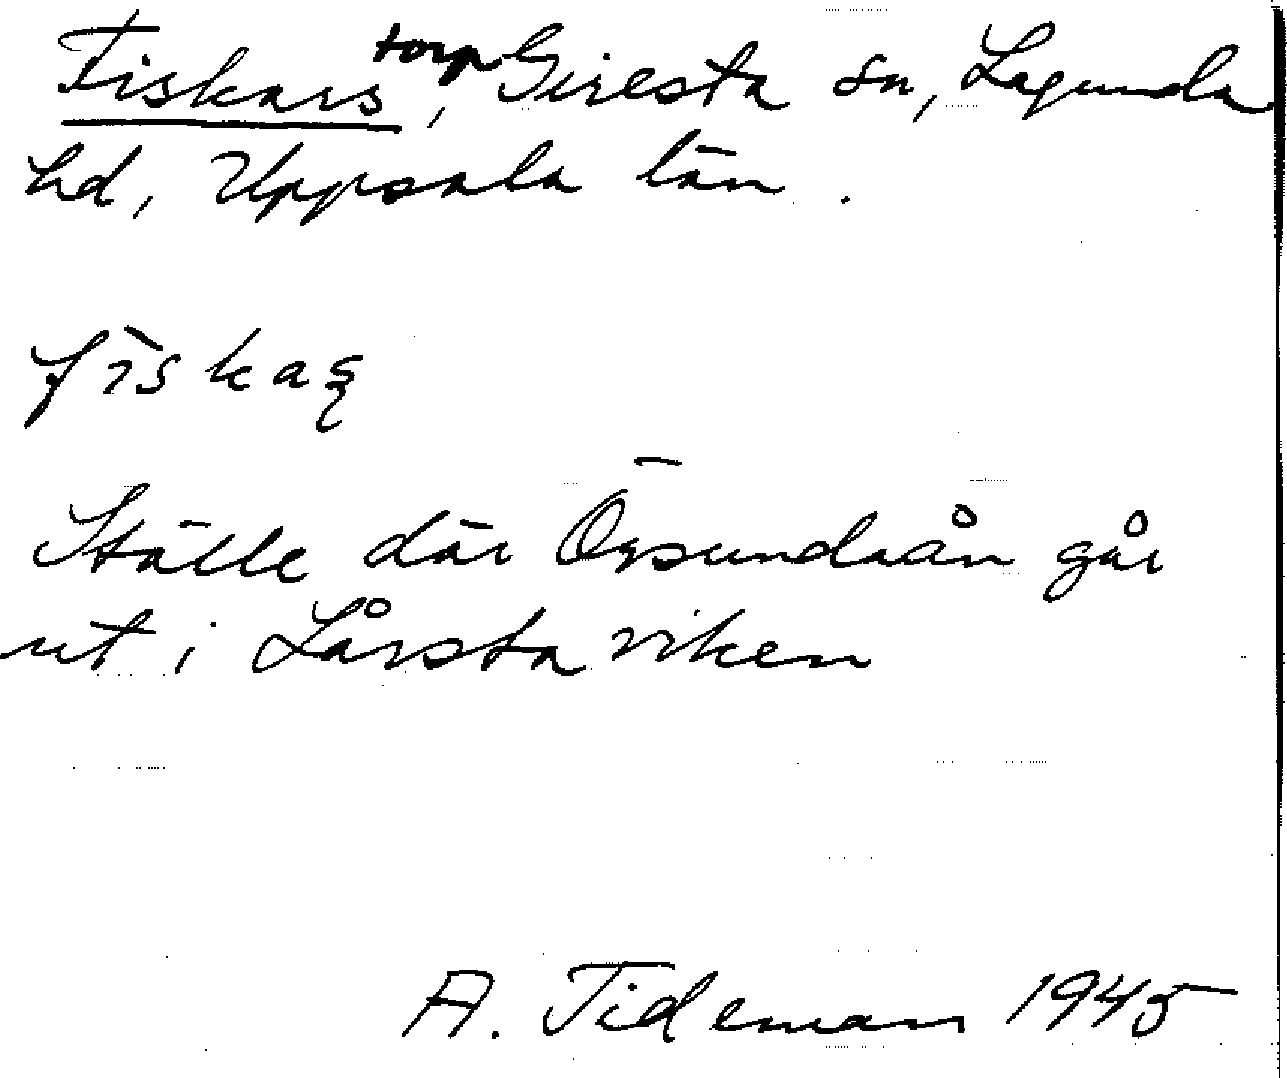 Fiskars, torp, Giresta sn, Lagunda
hd, Uppsala län.
fìskaʂ
Ställe där Örsundaån går
ut i Lårstaviken
A. Tideman 1945